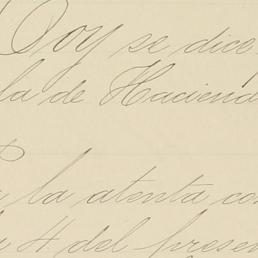 Hoy se dice
la de Haciend
la atenta co
4 del presen